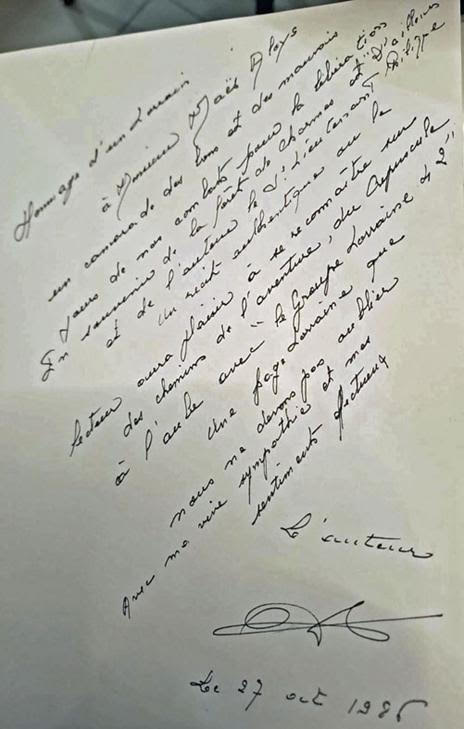 Hommage d'un Lorrain
à Monsieur Noël Aloys
un camarade des bons et des mauvais
jours de nos combats pour la libération
En souvenir de la forêt de Charmes et "d'ailleurs"
et de l'auteur le S/Lieutenant
Un récit authentique où le
lecteur aura plaisir à se reconnaître sur
des chemins de l'aventure, du crépuscule
à l'aube avec "le Groupe Lorraine 42"
Une page Lorraine que
nous ne devons pas oublier
Avec ma vive sympathie et mes
sentiments
L'auteur
Le 27 oct 1986